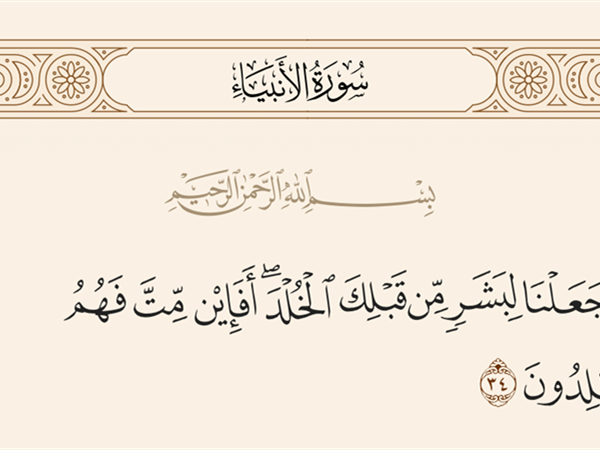 سُورَةُ الأَنبِيَاءِ
بِسْمِ اللَّهِ الرَّحْمَٰنِ الرَّحِيمِ
جَعَلْنَا لِبَشَرٍ مِّن قَبْلِكَ الْخُلْدَ ۖ أَفَإِيْن مِّتَّ فَهُمُ
لِدُونَ ٣٤